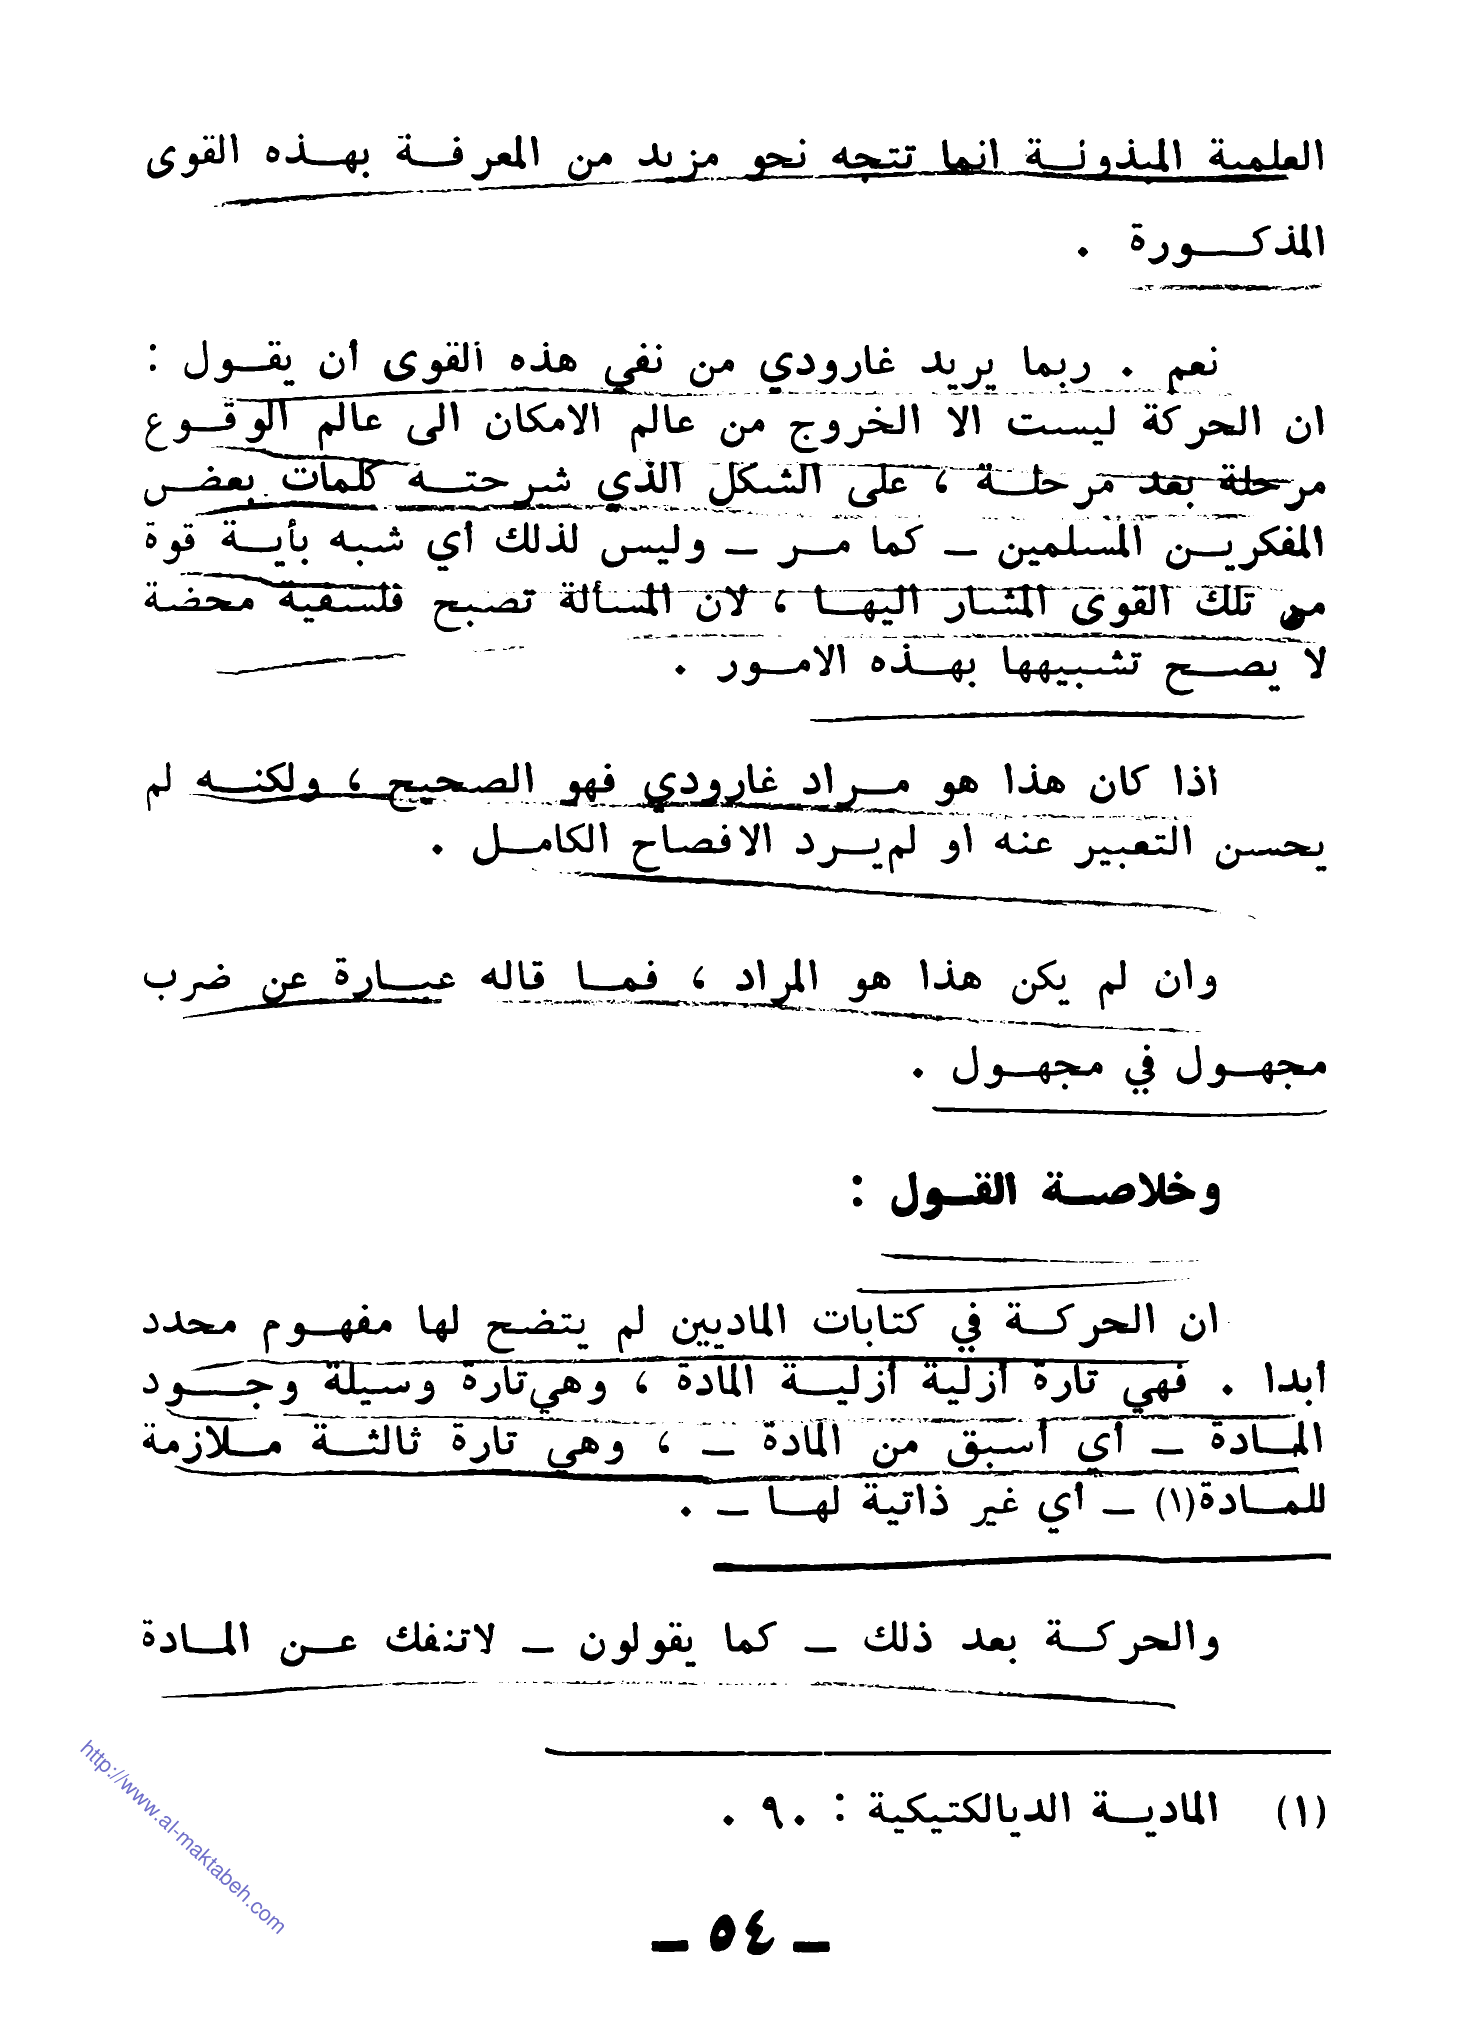 العلمية المبذونة انما تتجه نحو مزيد من المعرفة بهذه القوى
المذكورة .
نعم . ربما يريد غارودي من نفي هذه القوى أن يقول :
ان الحركة ليست الا الخروج من عالم الامكان الى عالم الوقوع
مرحلة بعد مرحلة ، على الشكل الذي شرحته كلمات بعض
المفكرين المسلمين ـ كما مر ـ وليس لذلك أي شبه بأية قوة
من تلك القوى المشار اليها ، لان المسألة تصبح فلسفية محضة
لا يصح تشبيهها بهذه الامور .
اذا كان هذا هو مراد غارودي فهو الصحيح ، ولكنه لم
يحسن التعبير عنه او لم يرد الافصاح الكامل .
وان لم يكن هذا هو المراد ، فما قاله عبارة عن ضرب
مجهول في مجهول .
وخلاصة القول :
ان الحركة في كتابات الماديين لم يتضح لها مفهوم محدد
أبدا . فهي تارة أزلية أزلية المادة ، وهي تارة وسيلة وجود
المادة ـ أي أسبق من المادة ـ ، وهي تارة ثالثة ملازمة
للمادة(١) ـ أي غير ذاتية لها ـ .
والحركة بعد ذلك ـ كما يقولون ـ لاتنفك عن المادة
(١) المادية الديالكتيكية : ٩٠ .
ـ ٥٤ ـ
http://www.al-maktabeh.com